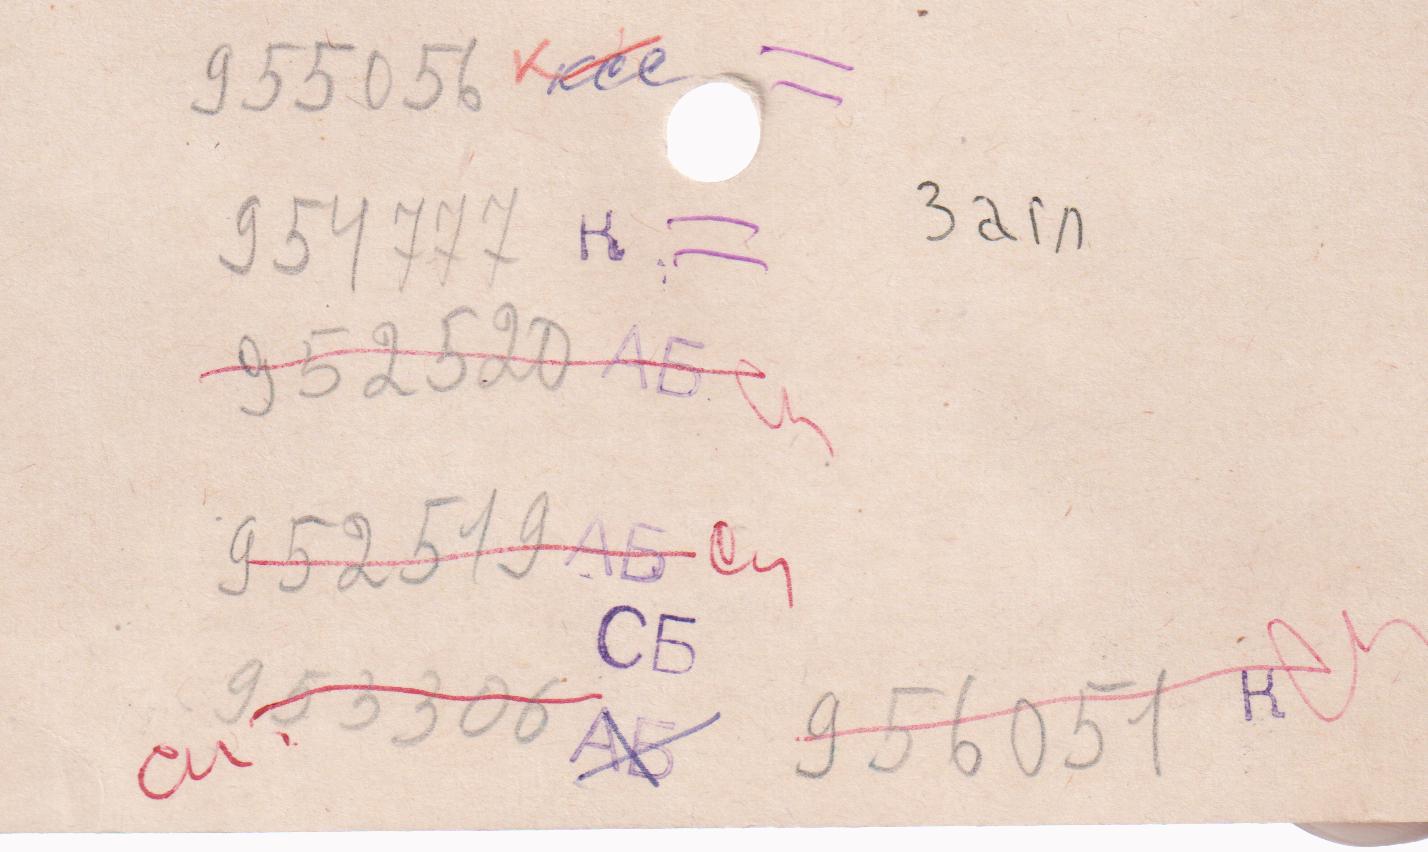 955056 К ксе =
954777 К. =
Загл
952520 АБ сп
952519 АБ Сп
СБ
953306 АБ
сп.
956051 К Сп